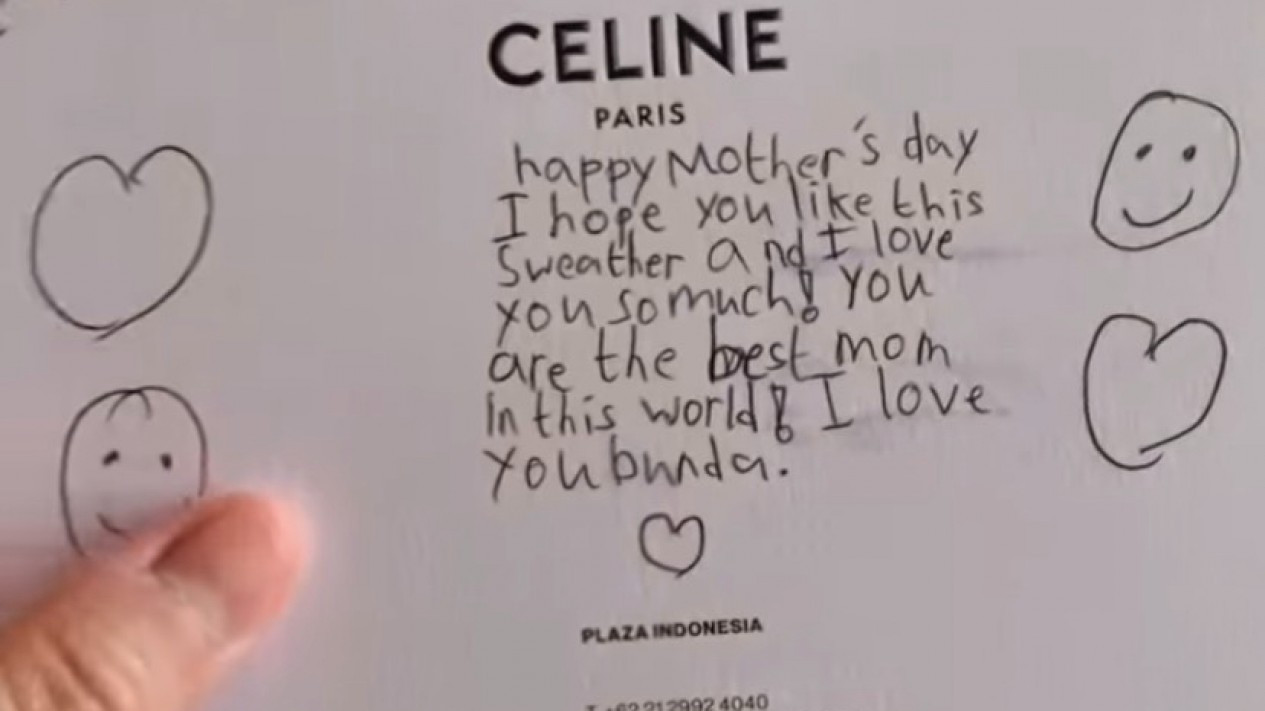 CELINE
PARIS
happy Mother's day
I hope you like this
Sweather and I love
you so much! You
are the best mom
In this world! I love
You bunda.
PLAZA INDONESIA
T +62 21 2992 4040